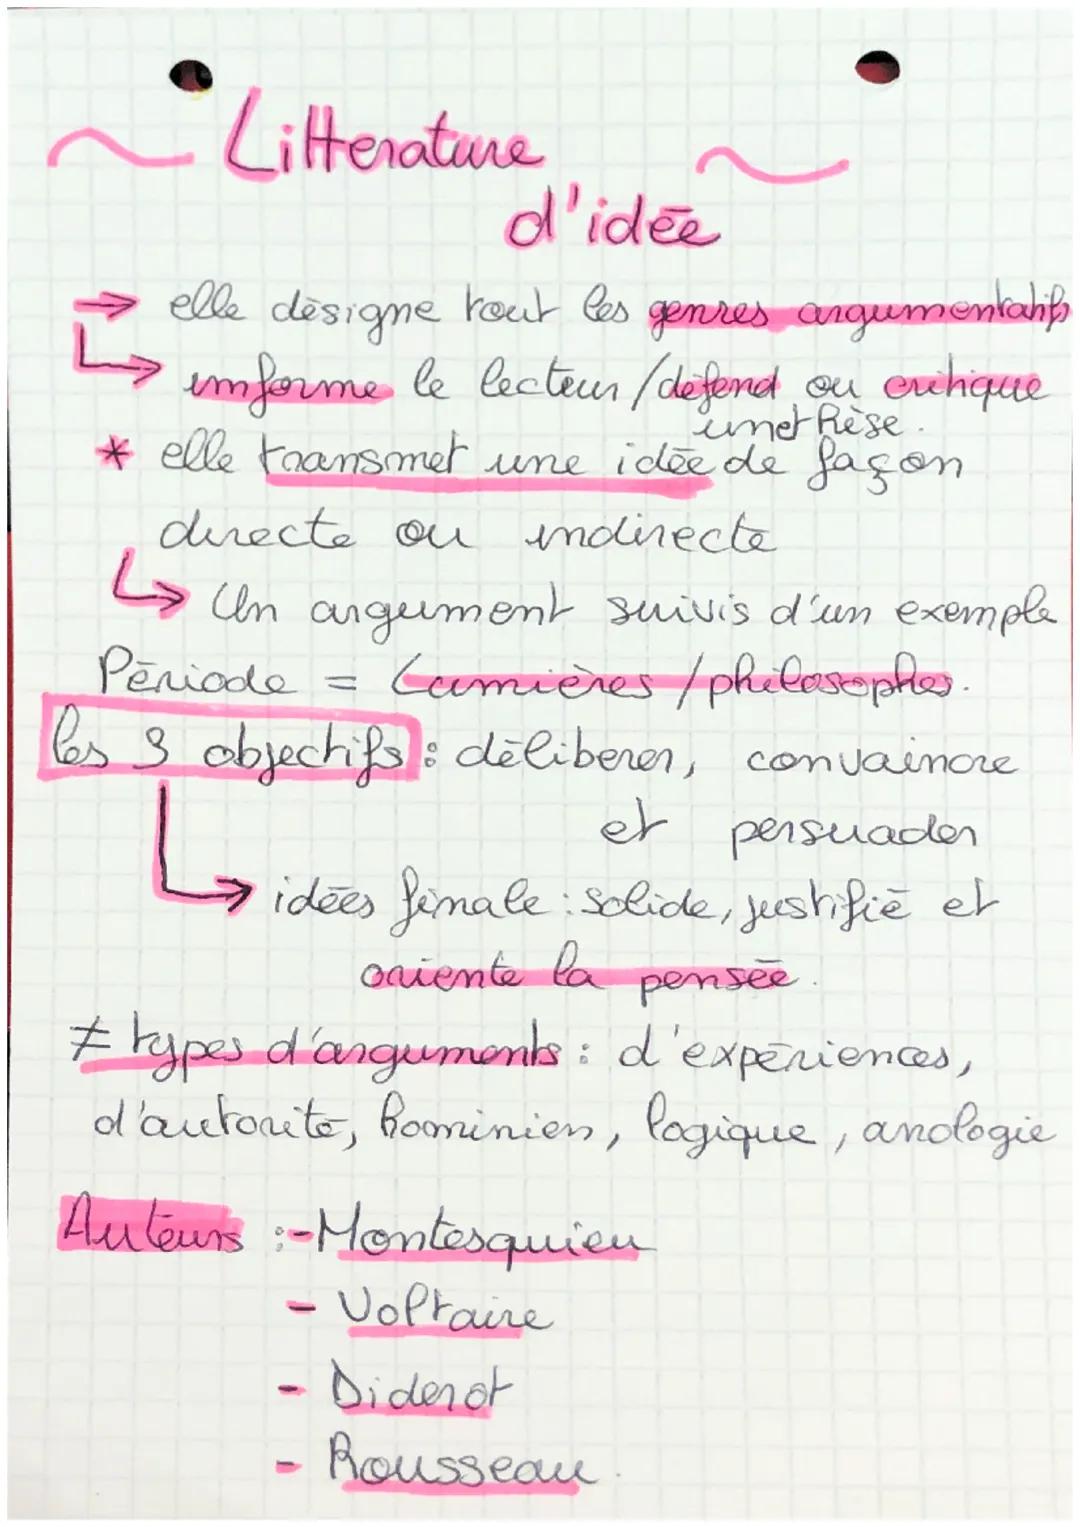 Litterature
d'idée
→ elle désigne tout les genres argumentatifs
↳ informe le lecteur / défend ou critique
une thèse.
* elle transmet une idée de façon
directe ou indirecte
↳ Un argument suivis d'un exemple
Période = Lumières / philosophes.
les 3 objectifs : déliberer, convaincre
et persuader
→ idées finale : solide, justifié et
oriente la pensée.
≠ types d'arguments : d'expériences,
d'autorité, hominien, logique, anologie
Auteurs : - Montesquieu
- Voltaire
- Diderot
- Rousseau.